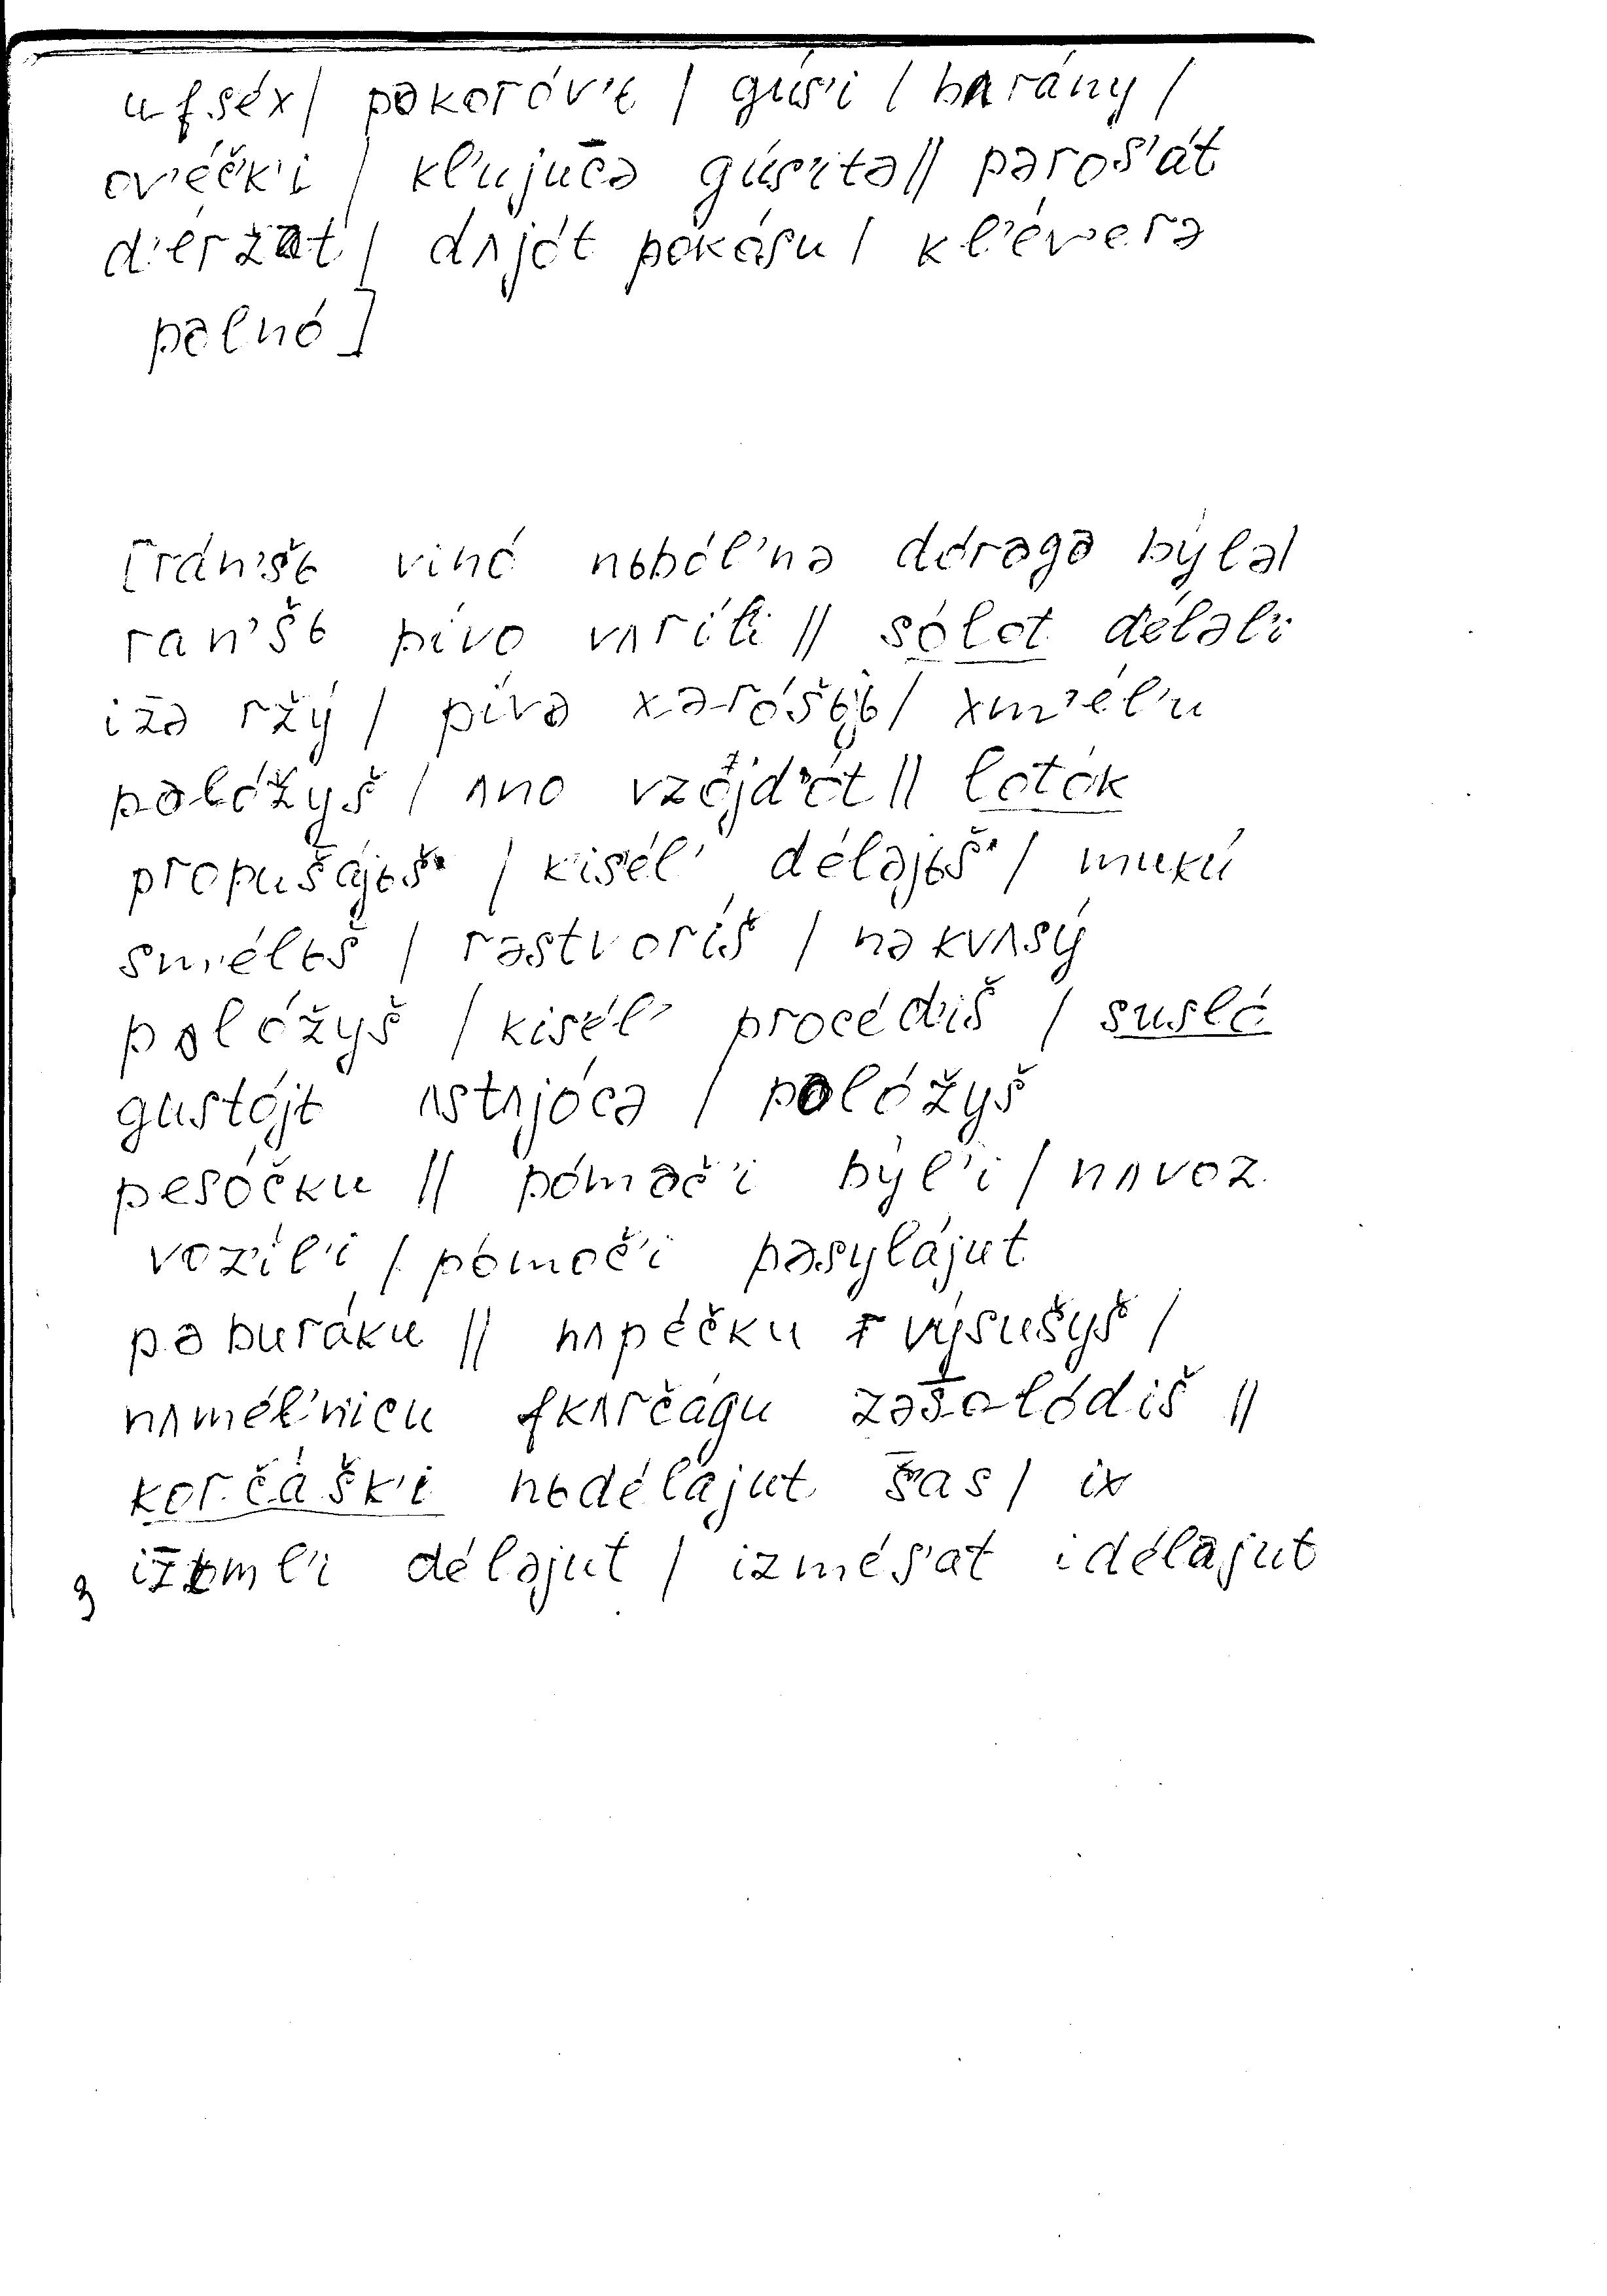 ufséx / pəkoróv'ь / gús'i / bʌrány /
ov'éčk'i / kl'ujuč̄ə gús'itə // pəros'át
d'éržət / dʌjót pokósu / kl'év'erə
pəlnó]
[rán'šь vinó nьból'nə dórəgə býlə /
ran'šь pívo vʌríl'i // sólot déləl'i
iz̄ə ržý / pívə xəróšыjь / xm'él'u
pəlóžyš / ʌno vzojd'ót // lotók
propuš̄ájьš / k'is'él' délәjьš / mukú
sm'élьš / rəstvoríš / nəkvʌsý
pʌlóžyš / kis'él' procéd'iš / susló
gustójь ʌstʌjócə / pəlóžyš
pesóčku // póməč'i býl'i / nʌvoz
voz'íl'i / pómoč'i pəsylájut
pəburáku // nʌpéčku výsušyš /
nʌmél'n'icu fkʌrčágu zəsolódiš //
korčášk'i nьdélajut š̄as / ix
iz̄ьml'i délәjut / izmés'at idélajut
3